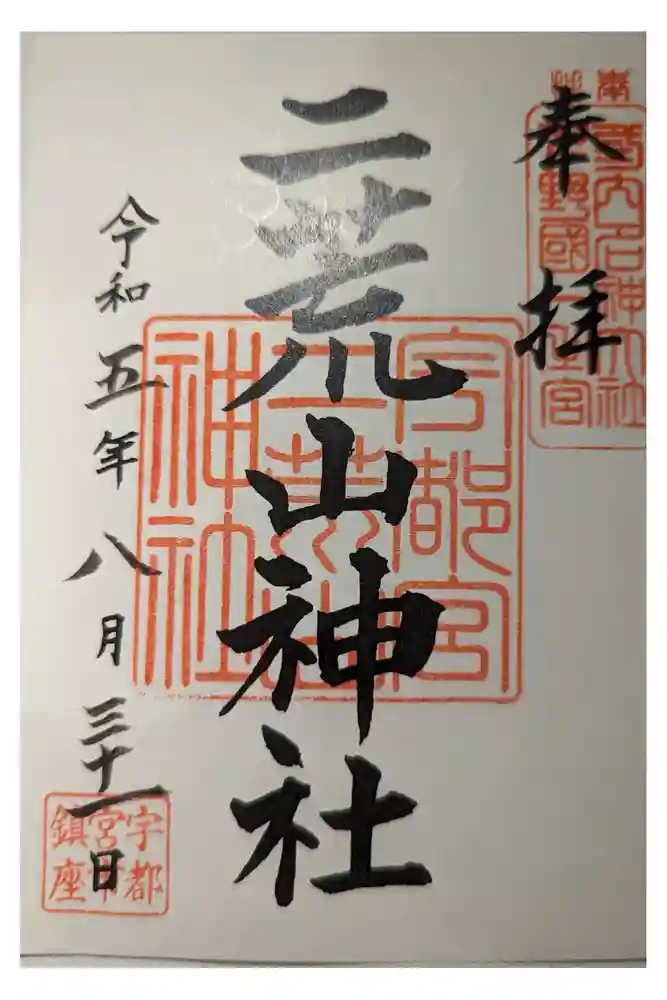 奉拝
式内名神大社
下野國一之宮
二荒山神社
宇都宮
二荒山
神社
令和五年八月三十一日
宇都
宮市
鎮座